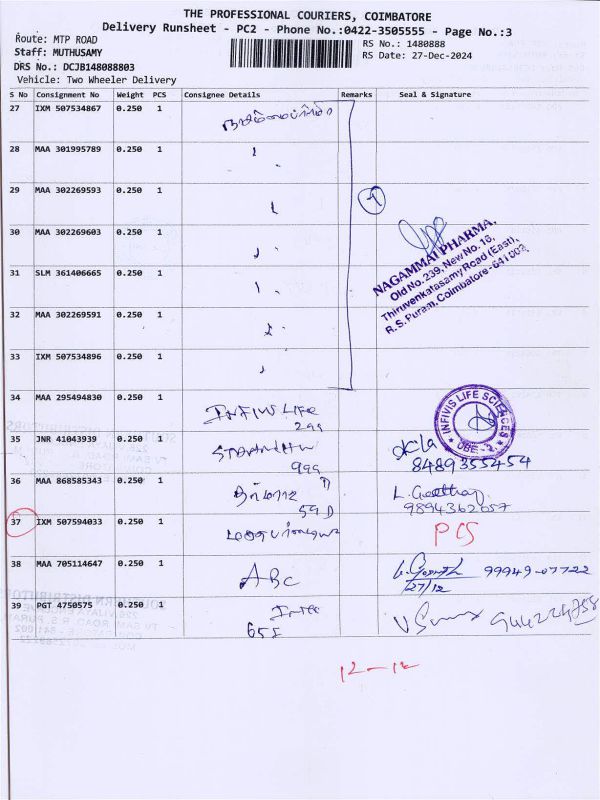 THE PROFESSIONAL COURIERS, COIMBATORE
Delivery Runsheet - PC2 - Phone No.:0422-3505555 - Page No.:3
Route: MTP ROAD
RS No.: 1480888
Staff: MUTHUSAMY
RS Date: 27-Dec-2024
DRS No.: DCJB148088803
Vehicle: Two Wheeler Delivery
S No Consignment No Weight PCS Consignee Details Remarks Seal & Signature
27 IXM 507534867 0.250 1
28 MAA 301995789 0.250 1
29 MAA 302269593 0.250 1
30 MAA 302269603 0.250 1
31 SLM 361406665 0.250 1
32 MAA 302269591 0.250 1
33 IXM 507534896 0.250 1
7
NAGAMMAI PHARMA,
Old No. 239, New No. 16,
Thiruvenkatasamy Road (East),
R. S. Puram, Coimbatore - 641 002
34 MAA 295494830 0.250 1 INFIVIS LIFE
299
INFIVIS LIFE SCIENCES
CBE - 2.
35 JNR 41043939 0.250 1
999
8489355454
36 MAA 868585343 0.250 1
59 D
L. Geetha
9894362057
37 IXM 507594033 0.250 1
PCS
38 MAA 705114647 0.250 1 ABC
27/12 99949-07722
39 PGT 4750575 0.250 1
655
9442224758
12-12